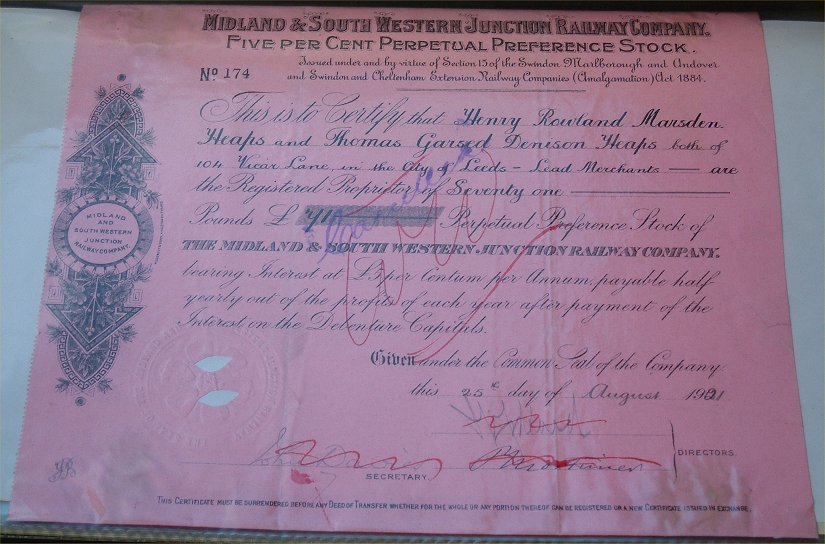 MIDLAND & SOUTH WESTERN JUNCTION RAILWAY COMPANY.
FIVE PER CENT PERPETUAL PREFERENCE STOCK.
Issued under and by virtue of Section 15 of the Swindon Marlborough and Andover
and Swindon and Cheltenham Extension Railway Companies (Amalgamation) Act 1884.
No 174
This is to Certify that Henry Rowland Marsden
Heaps and Thomas Garsed Denison Heaps both of
104 Lane, in the City of Leeds - Lead Merchants - are
the Registered Proprietor of Seventy one
Pounds £ 71 Perpetual Preference Stock of
THE MIDLAND & SOUTH WESTERN JUNCTION RAILWAY COMPANY.
bearing Interest at £5 per Centum per Annum payable half
yearly out of the profits of each year after payment of the
Interest on the Debenture Capitals.
Cancelled
MIDLAND
AND
SOUTH WESTERN
JUNCTION
RAILWAY COMPANY.
Given under the Common Seal of the Company
this 25th day of August 1921
DIRECTORS.
SECRETARY.
THIS CERTIFICATE MUST BE SURRENDERED BEFORE ANY DEED OF TRANSFER WHETHER FOR THE WHOLE OR ANY PORTION THEREOF CAN BE REGISTERED OR A NEW CERTIFICATE ISSUED IN EXCHANGE.